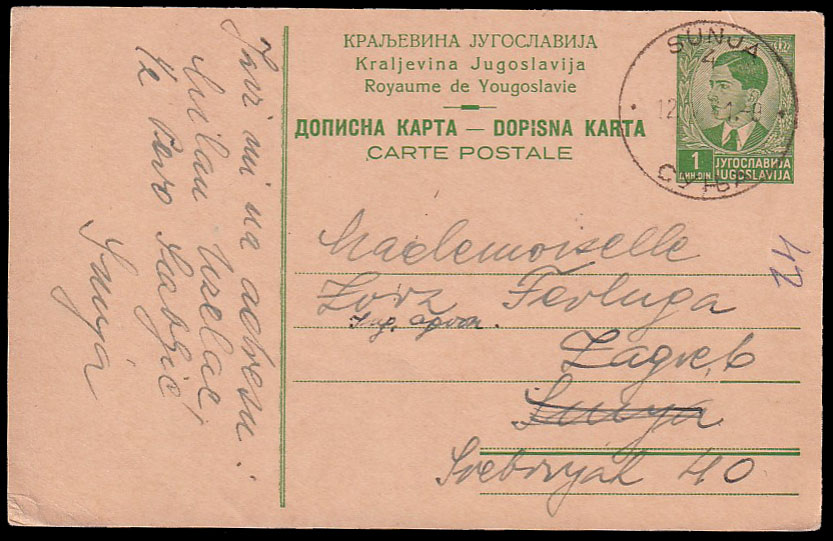 КРАЉЕВИНА ЈУГОСЛАВИЈА
Kraljevina Jugoslavija
Royaume de Yougoslavie
ДОПИСНА КАРТА — DOPISNA KARTA
CARTE POSTALE
SUNJA
4
СУЊА
1
ДИН. DIN.
ЈУГОСЛАВИЈА
JUGOSLAVIJA
Mademoiselle
Ferluga
Ing. agron.
Zagreb
Sunja
Srebrnjak 40
42
Javi mi na adresu:
Milan Uzelac
Sunja